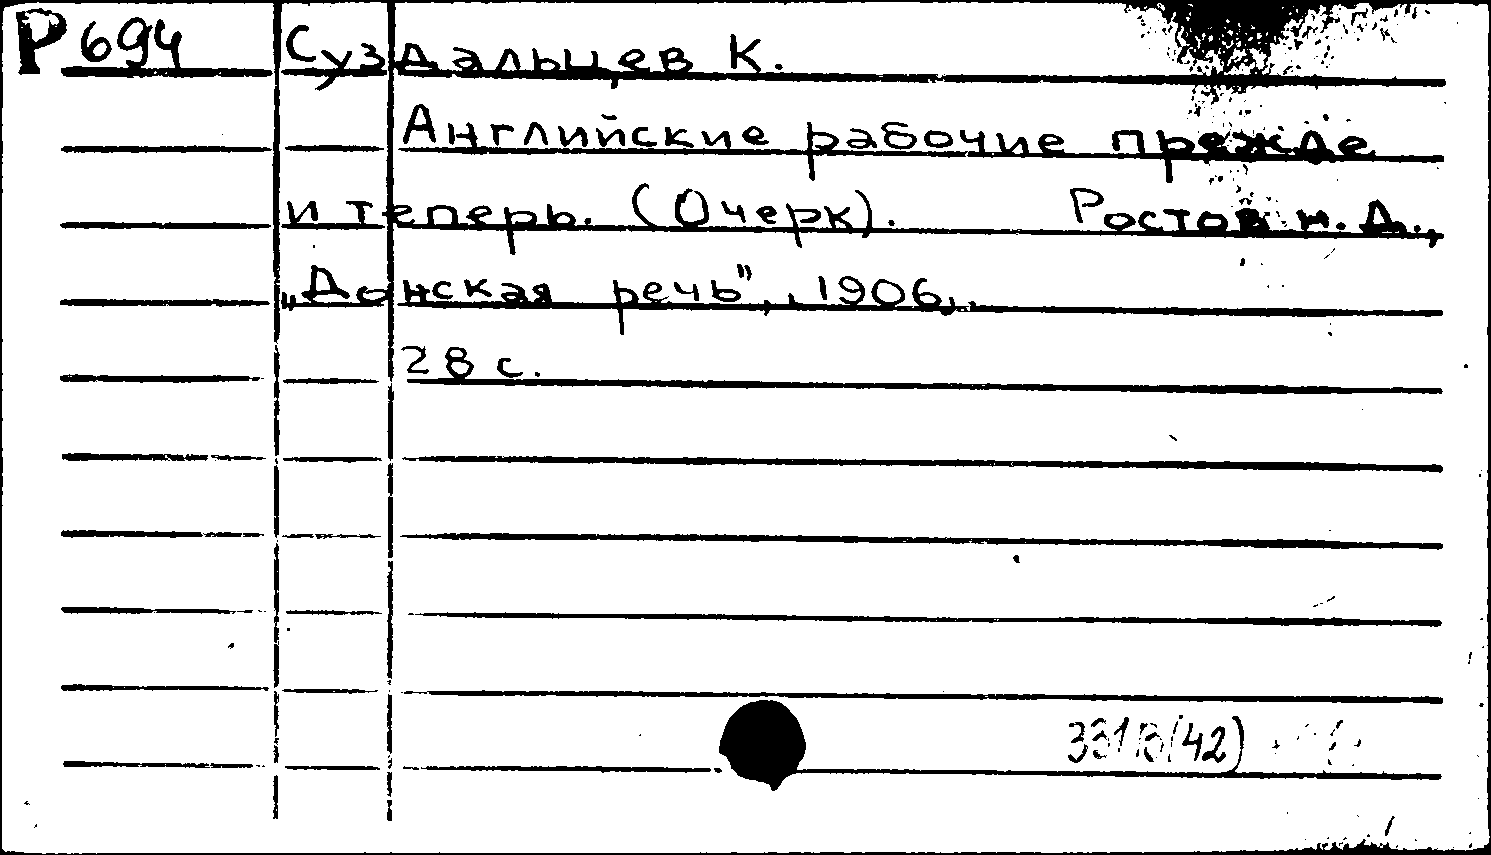 Р 694 Суздальцев К.
Английские рабочие прежде
и теперь. (Очерк). Ростов н. Д.,
„Донская речь", 1906,
28 с.
331В(42)